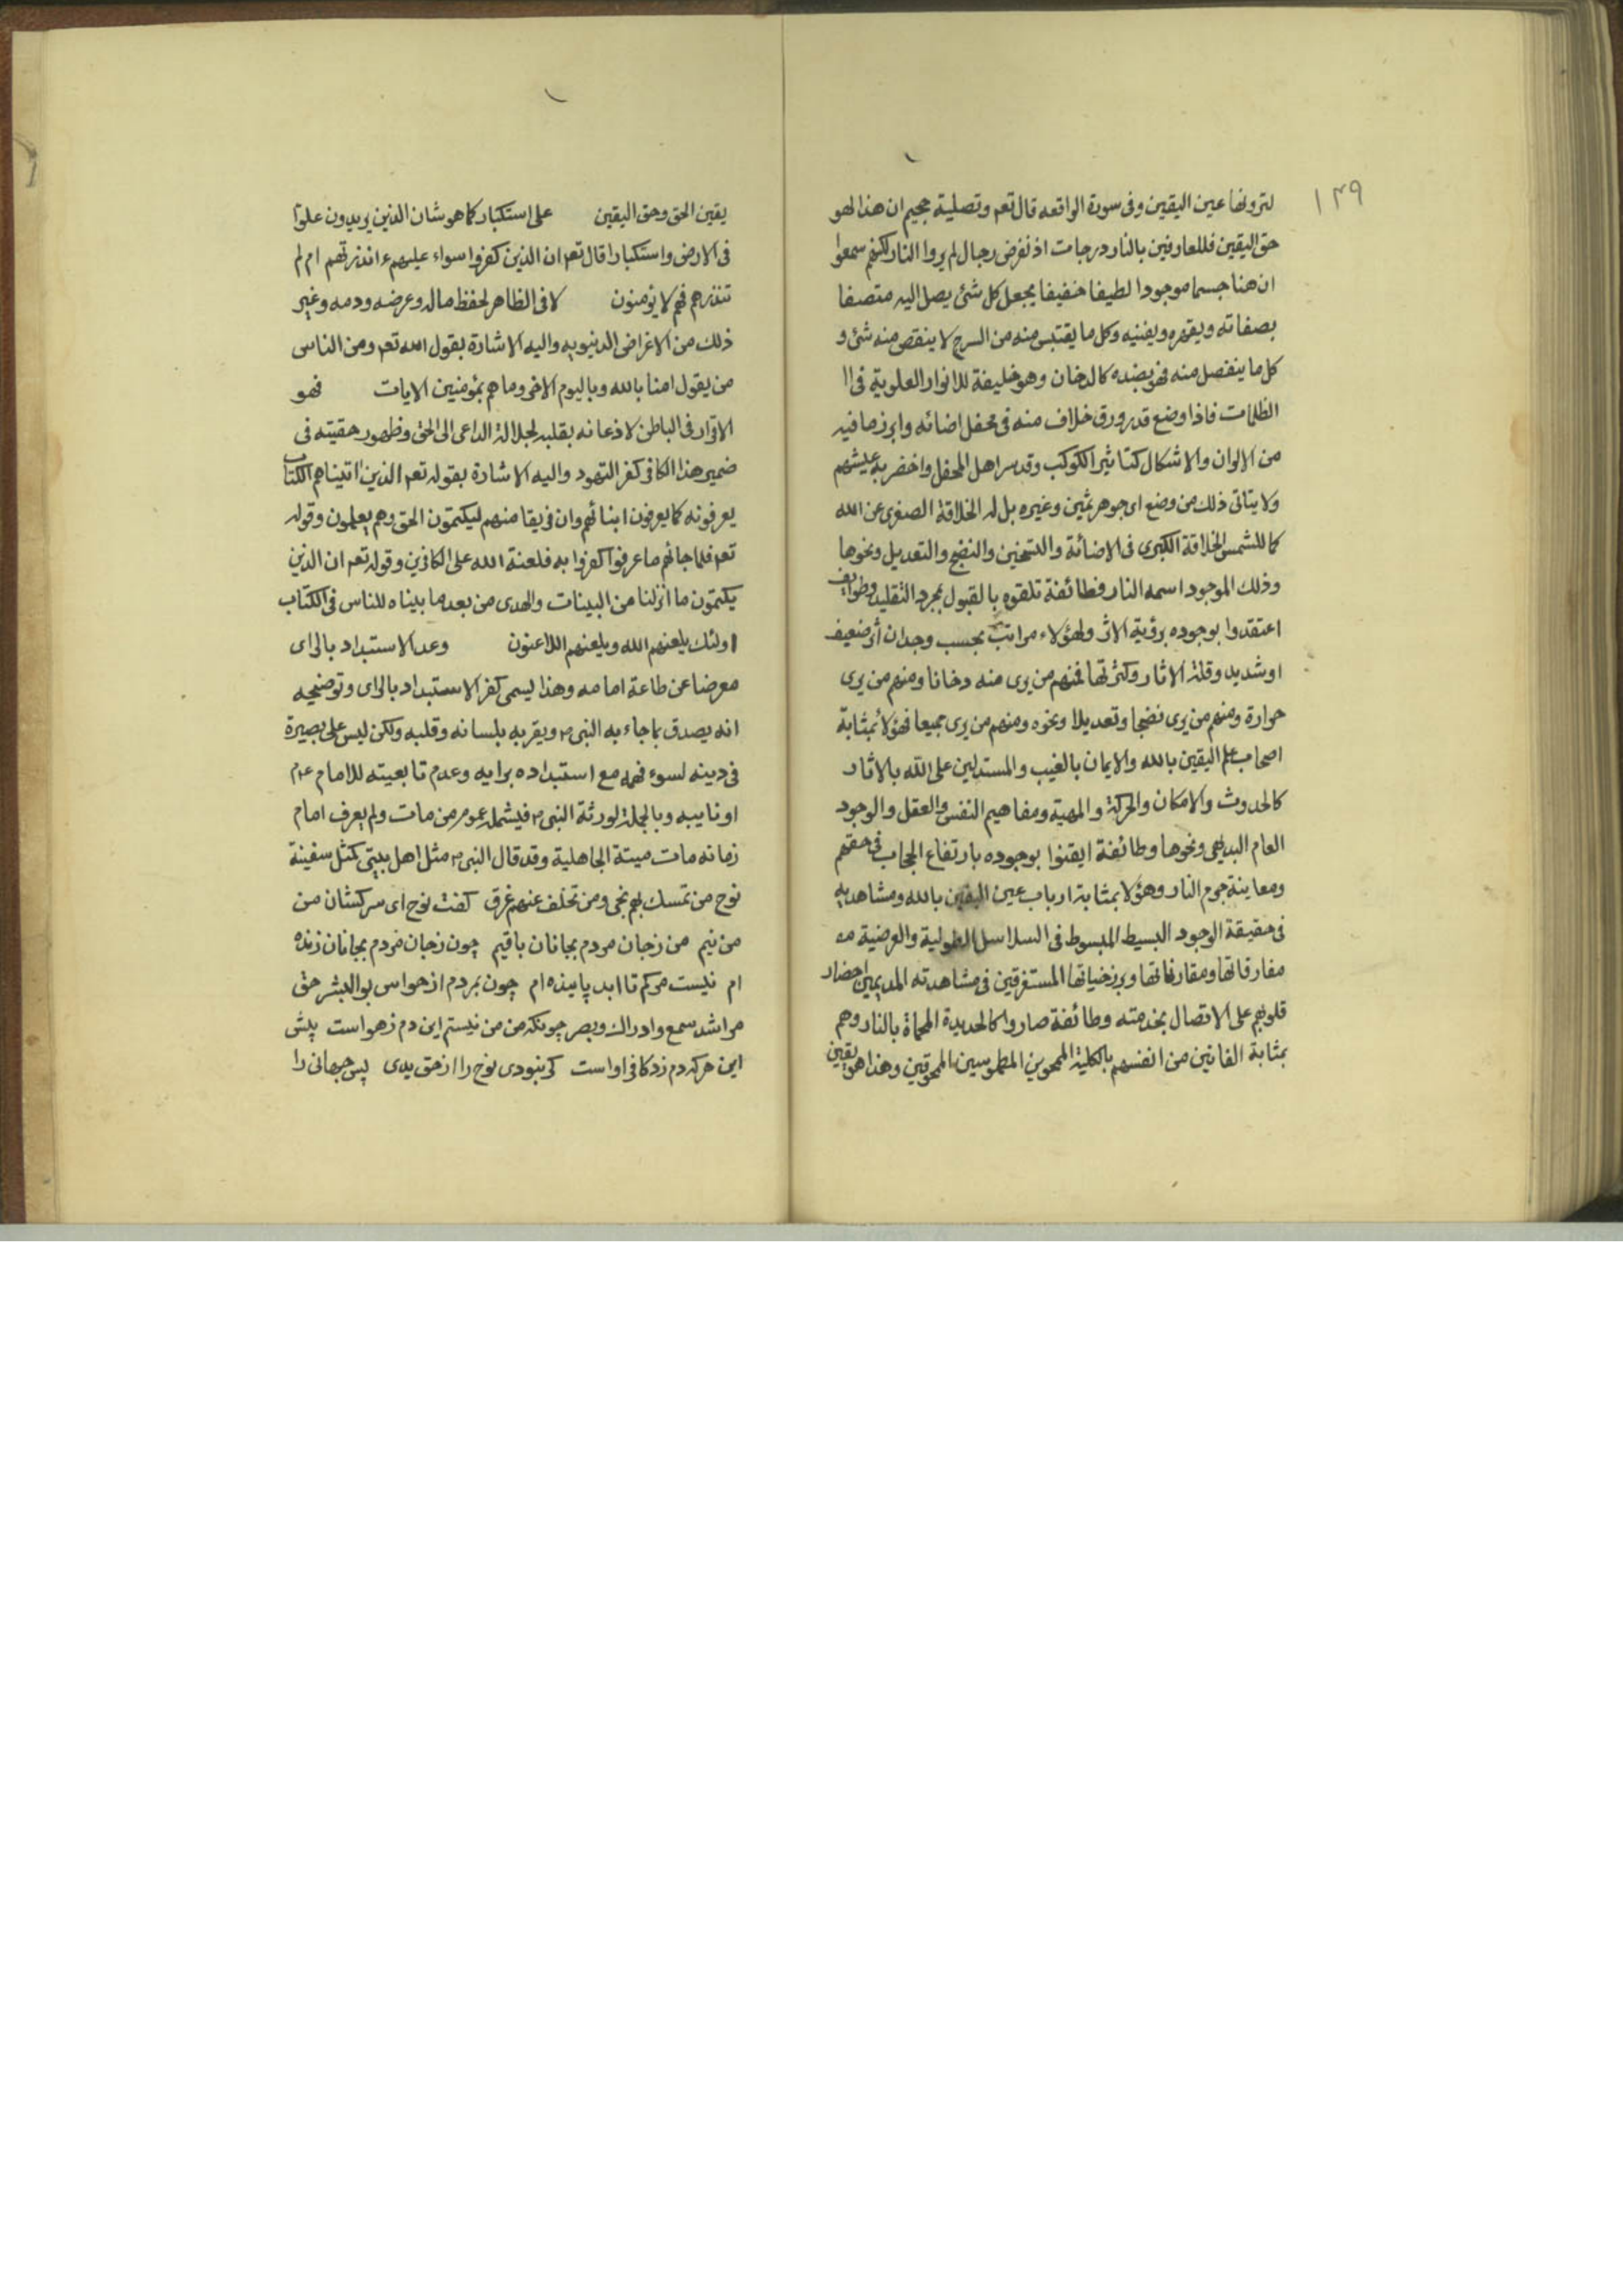 ١٣٩
لترونها عين اليقين وفى سورة الواقعه قال تعم وتصلية جحيم ان هذا لهو
حق اليقين فللعارفين بالنار درجات اذ نفرض رجال لم يروا النار لكنهم سمعوا
ان هنا جسما موجودا لطيفا خفيفا يجعل كل شئ يصل اليه متصفا
بصفاته ويقهره ويفنيه وكل ما يقتبس منه من السرج لا ينقص منه شئ و
كل ما ينفصل منه فهو بضده كالدخان وهو خليفة للانوار العلوية فى ا
الظلمات فاذا وضع قدر ورق خلاف منه فى محفل اضائه وابرز ما فيه
من الالوان والاشكال كتاثير الكوكب وقد سر اهل المحفل واخضر به عيشهم
ولا يتاتى ذلك من وضع اى جوهر ثمين وغيره بل له الخلافة الصغرى عن الله
كما للشمس الخلافة الكبرى فى الاضائة والتسخين والنضج والتعديل ونحوها
وذلك الموجود اسمه النار فطائفة تلقوه بالقبول بمجرد التقليد وطوايف
اعتقدوا بوجوده برؤية الاثر ولهؤلاء مراتب بحسب وجدان أثر ضعيف
او شديد وقلة الاثار وكثرتها فمنهم من يرى منه دخانا ومنهم من يرى
حرارة ومنهم من يرى نضجا وتعديلا ونحوه ومنهم من يرى جميعا فهؤلاء بمثابة
اصحاب علم اليقين بالله والايمان بالغيب والمستدلين على الله بالاثار
كالحدوث والامكان والحركة والمهية ومفاهيم النفس والعقل والوجود
العام البديهى ونحوها وطائفة ايقنوا بوجوده بارتفاع الحجاب فى حقهم
ومعاينة جرم النار وهؤلا بمثابة ارباب عين اليقين بالله ومشاهديه
فى حقيقة الوجود البسيط المبسوط فى السلاسل الطولية والعرضية
مفارقاتها ومقارناتها وبرزخياتها المستغرقين فى مشاهدته المديمين احضار
قلوبهم على الاتصال بخدمته وطائفة صاروا كالحديدة المحماة بالنار وهم
بمثابة الفانين من انفسهم بالكلية الممحوين المطموسين الممحوقين وهذا هو يقين
يقين الحق وحق اليقين على استكبار كما هو شان الذين يريدون علوّا
فى الارض واستكبارا قال تعم ان الذين كفروا سواء عليهم ءانذرتهم ام لم
تنذرهم فهم لا يؤمنون لا فى الظاهر لحفظ ماله وعرضه ودمه وغير
ذلك من الاغراض الدنيويه واليه الاشارة بقول الله تعم ومن الناس
من يقول امنا بالله وباليوم الاخر وما هم بمؤمنين الايات فهو
الاقرار فى الباطن لاذعانه بقلبه لجلالة الداعى الى الحق وظهور حقيته فى
ضمير هذا الكافر كفر التهود واليه الاشارة بقوله تعم الذين اتيناهم الكتاب
يعرفونه كما يعرفون ابنائهم وان فريقا منهم ليكتمون الحق وهم يعلمون وقوله
تعم فلما جائهم ما عرفوا كفروا به فلعنة الله على الكافرين وقوله تعم ان الذين
يكتمون ما انزلنا من البينات والهدى من بعد ما بيناه للناس فى الكتاب
اولئك يلعنهم الله ويلعنهم اللاعنون وعد الاستبداد بالراى
معرضا عن طاعة امامه وهذا ليسمى كفر الاستبداد بالراى وتوضيحه
انه يصدق بما جاء به النبى ص ويقر به بلسانه وقلبه ولكن ليس على بصيرة
فى دينه لسوء فهمه مع استبداده برايه وعدم تابعيته للامام ع
او نايبه وبالجملة لورثة النبى ص فيشمله عموم من مات ولم يعرف امام
زمانه مات ميتة الجاهلية وقد قال النبى ص مثل اهل بيتى كمثل سفينة
نوح من تمسك بهم نجى ومن تخلف عنهم غرق كفت نوح اى سركشان من
من نيم من زجان مردم بجانان باقيم چون زجان مردم بجانان زنده
ام نيست مركم تا ابد پاينده ام چون بمردم از حواس بوالبشر حق
مرا شد سمع وادراك وبصر چونكه من من نيستم اين دم زهواست پيش
اين هركه دم زد كافر اواست كر نبودى نوح را از حق يدى پس جهانى را